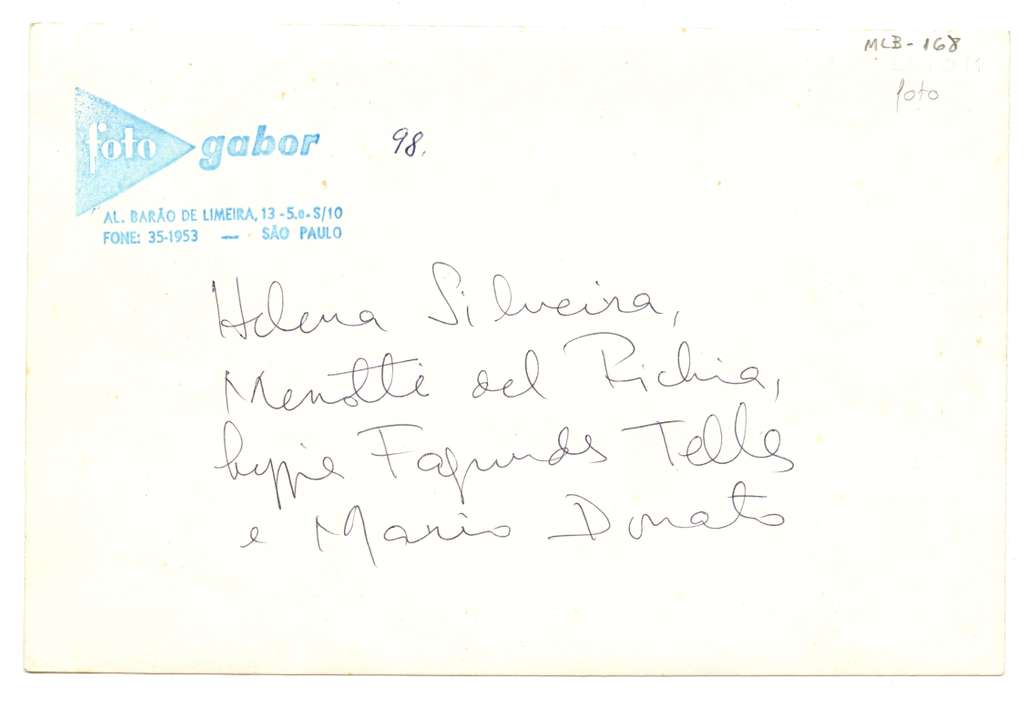 MLB-168
foto
foto gabor
98.
AL. BARÃO DE LIMEIRA, 13 - 5.o - S/10
FONE: 35-1953 — SÃO PAULO
Helena Silveira,
Menotti del Picchia,
Lygia Fagundes Telles
e Mario Donato